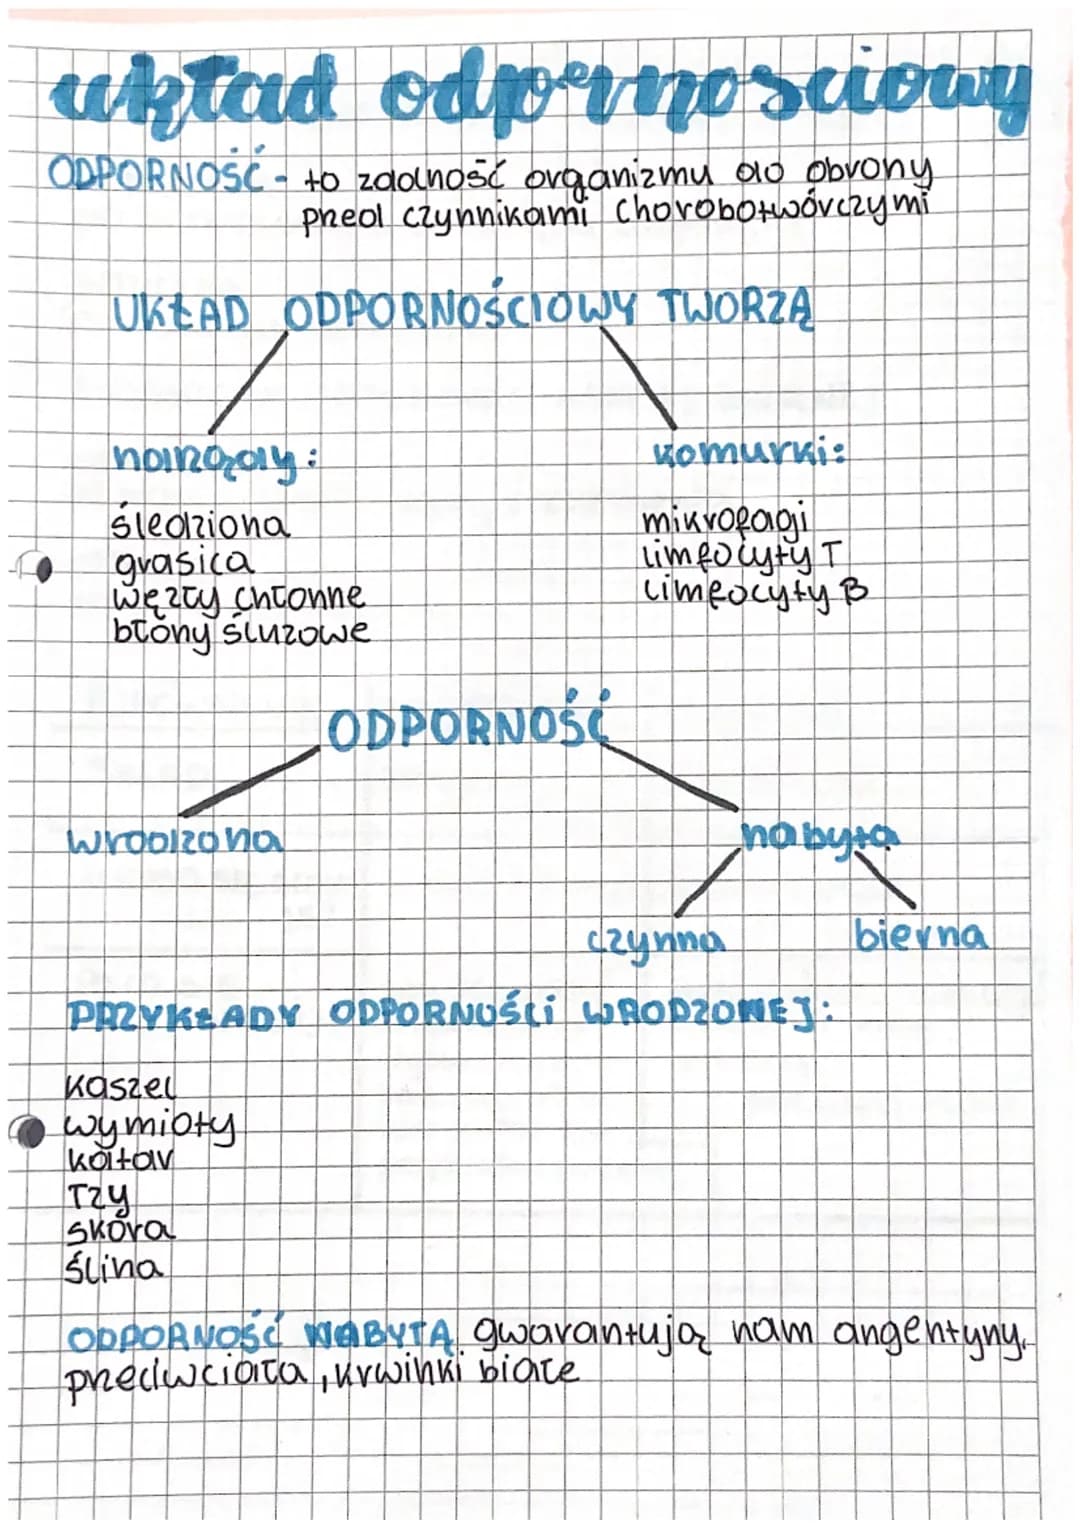 układ odpornościowy
ODPORNOŚĆ - to zdolność organizmu do obrony
przed czynnikami chorobotwórczymi
UKŁAD ODPORNOŚCIOWY TWORZĄ
narządy:
komurki:
śledziona
grasica
węzły chłonne
błony śluzowe
mikrofagi
limfocyty T
limfocyty B
ODPORNOŚĆ
wrodzona
nabyta
czynna
bierna
PRZYKŁADY ODPORNOŚCI WRODZONEJ:
kaszel
wymioty
katar
łzy
skóra
ślina
ODPORNOŚĆ NABYTĄ gwarantują nam angentyny,
przeciwciała, krwinki białe